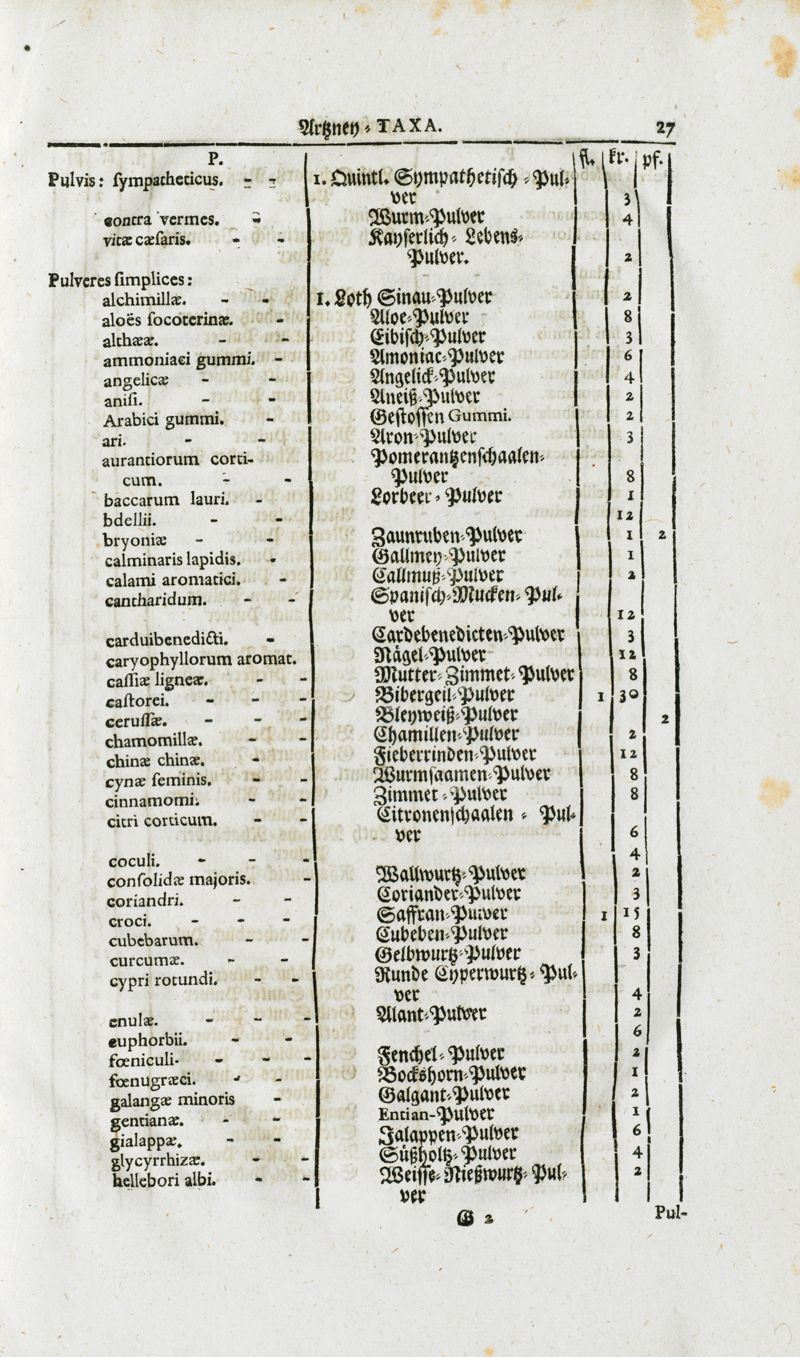 Artzney-TAXA. 27
P. fl. kr. pf.
Pulvis: sympatheticus. - - 1. Quintl. Sympathetisch-Pul-
ver 3
contra vermes. - Wurm-Pulver 4
vitæ cæsaris. - - Kayserlich-Lebens-
Pulver. 2
Pulveres simplices:
alchimillæ. - - 1. Loth Sinau-Pulver 2
aloës socoterinæ. - Aloe-Pulver 8
althææ. - - Eibisch-Pulver 3
ammoniaci gummi. - Amoniac-Pulver 6
angelicæ - - Angelick-Pulver 4
anisi. - - Aneiß-Pulver 2
Arabici gummi. - Gestossen Gummi. 2
ari. - - Aron-Pulver 3
aurantiorum corti- Pomerantzenschaalen-
cum. - - Pulver 8
baccarum lauri. - Lorbeer-Pulver 1
bdellii. - - 12
bryoniæ - - Zaunruben-Pulver 1 2
calminaris lapidis. - Gallmey-Pulver 1
calami aromatici. - Callmuß-Pulver 2
cantharidum. - - Spanisch-Mucken-Pul-
ver 12
carduibenedicti. - Cardebenedicten-Pulver 3
caryophyllorum aromat. Nägel-Pulver 12
cassiæ ligneæ. - - Mutter-Zimmet-Pulver 8
castorei. - - - Bibergeil-Pulver 1 30
cerussæ. - - - Bleyweiß-Pulver 2
chamomillæ. - - Chamillen-Pulver 2
chinæ chinæ. - Fieberrinden-Pulver 12
cynæ seminis. - - Wurmsaamen-Pulver 8
cinnamomi. - - Zimmet-Pulver 8
citri corticum. - - Citronenschaalen-Pul-
ver 6
coculi. - - - 4
consolidæ majoris. - Wallwurtz-Pulver 2
coriandri. - - Coriander-Pulver 3
croci. - - - Saffran-Pulver 1 15
cubebarum. - - Cubeben-Pulver 8
curcumæ. - - Gelbwurtz-Pulver 3
cypri rotundi. - - Runde Cyperwurtz-Pul-
ver 4
enulæ. - - - Alant-Pulver 2
euphorbii. - - 6
fœniculi. - - - Fenchel-Pulver 2
fœnugræci. - - Bockshorn-Pulver 1
galangæ minoris - Galgant-Pulver 2
gentianæ. - - Entian-Pulver 1
gialappæ. - - Jalappen-Pulver 6
glycyrrhizæ. - - Süßholtz-Pulver 4
hellebori albi. - - Weisse-Nießwurtz-Pul- 2
ver
G 2 Pul-